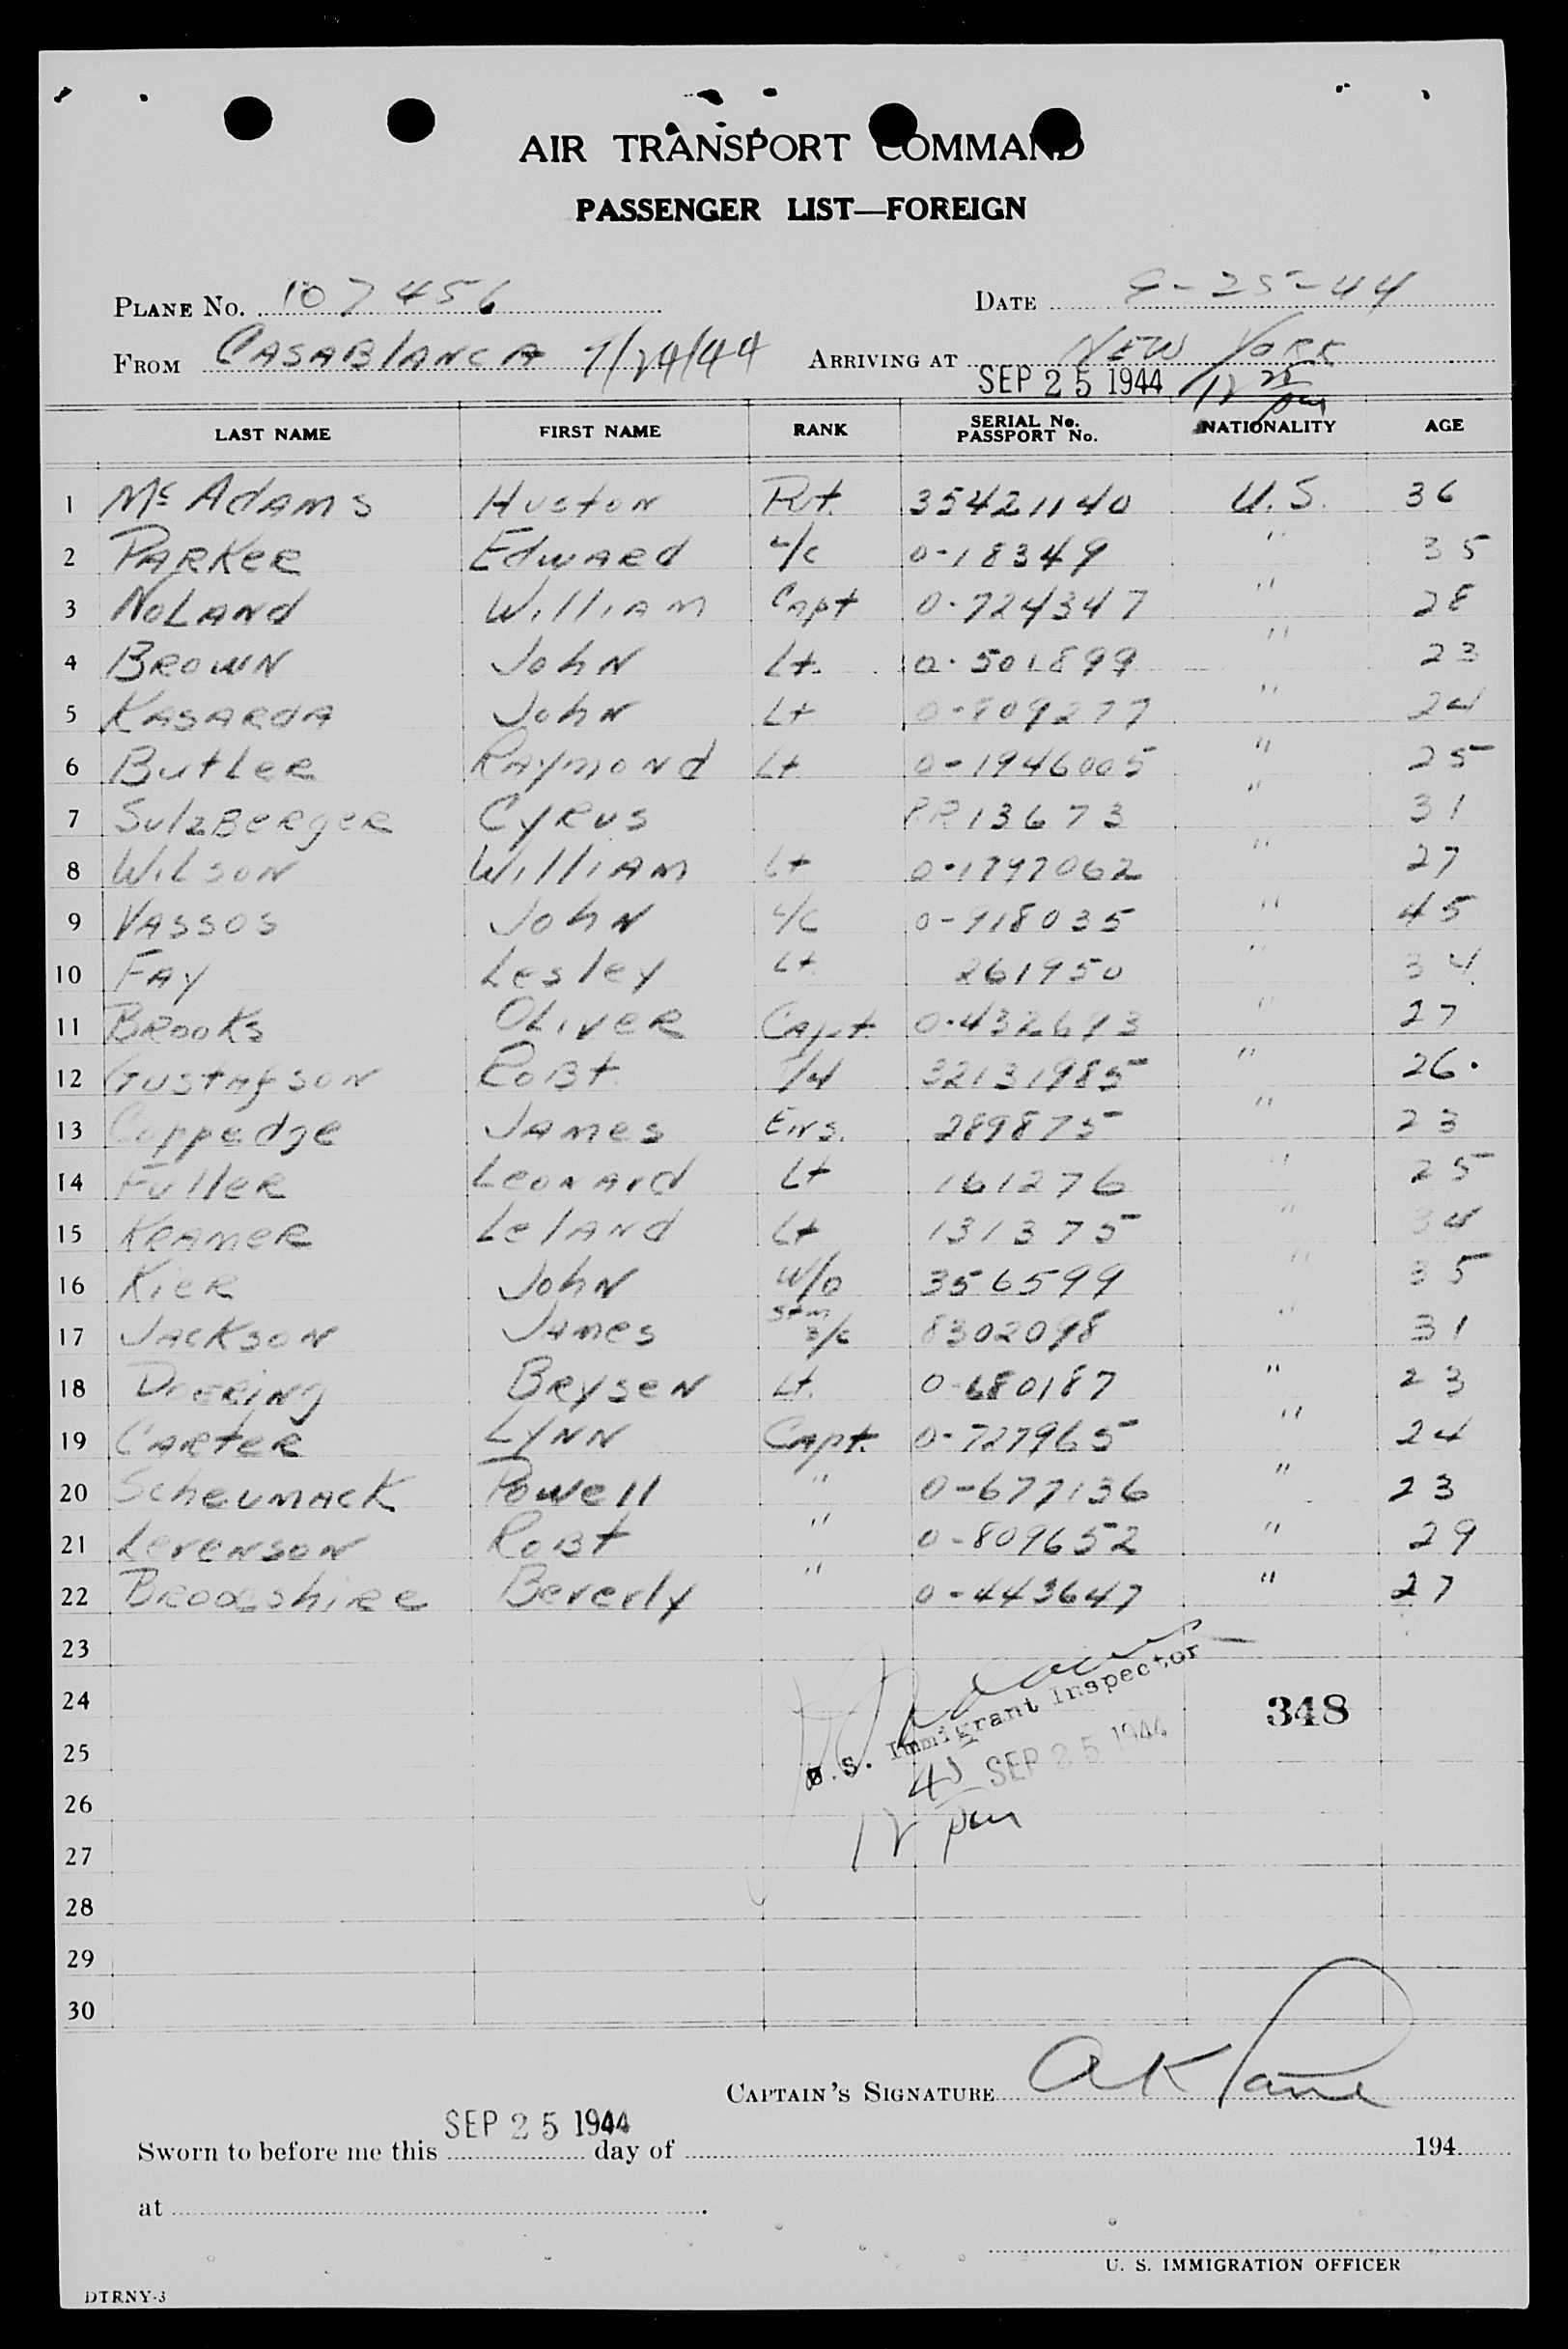 AIR TRANSPORT COMMAND
PASSENGER LIST—FOREIGN
PLANE No. 107456 DATE 9-25-44
FROM CASABlANCA 9/24/44 ARRIVING AT NEW YORK
SEP 25 1944 12 25 pm
LAST NAME FIRST NAME RANK SERIAL No. PASSPORT No. NATIONALITY AGE
1 McAdAMS HUStON Pvt. 35421140 U.S. 36
2 PARKeR EdwARd L/C 0-18349 " 35
3 NoLANd WilliAM Capt 0-724347 " 28
4 BROWN JohN Lt. 0-501899 " 23
5 KASARdA JohN Lt 0-809277 " 24
6 ButLeR RAymoNd Lt 0-1946005 " 25
7 SulzBeRgeR CyRUS PR13673 " 31
8 WiLSON WilliAM Lt 0-1797062 " 27
9 VASSOS JohN L/C 0-918035 " 45
10 FAy Lesley Lt. 261950 " 34
11 BRooKs OLiVeR Capt. 0-432693 " 27
12 GUStAfSON RoBt. T/4 32131985 " 26.
13 Coppedge JAMes ENS. 289875 " 23
14 FulleR LeoNArd Lt 161276 " 25
15 KRAMeR LelANd Lt 131375 " 34
16 KieR JohN W/O 356599 " 35
17 JACKSON JAMes Stm 3/c 8302098 " 31
18 DoERiNg BRySeN Lt. 0-680187 " 23
19 CARteR LyNN Capt. 0-727965 " 24
20 ScheUMAcK Powell " 0-677136 " 23
21 LeveNSON RoBt " 0-809652 " 29
22 Beverly " 0-443647 " 27
23
24 348
U.S. Immigrant Inspector
25
SEP 25 1944
26
12 45 pm
27
28
29
30
CAPTAIN'S SIGNATURE
SEP 25 1944
Sworn to before me this day of 194
at
U. S. IMMIGRATION OFFICER
DTRNY-3